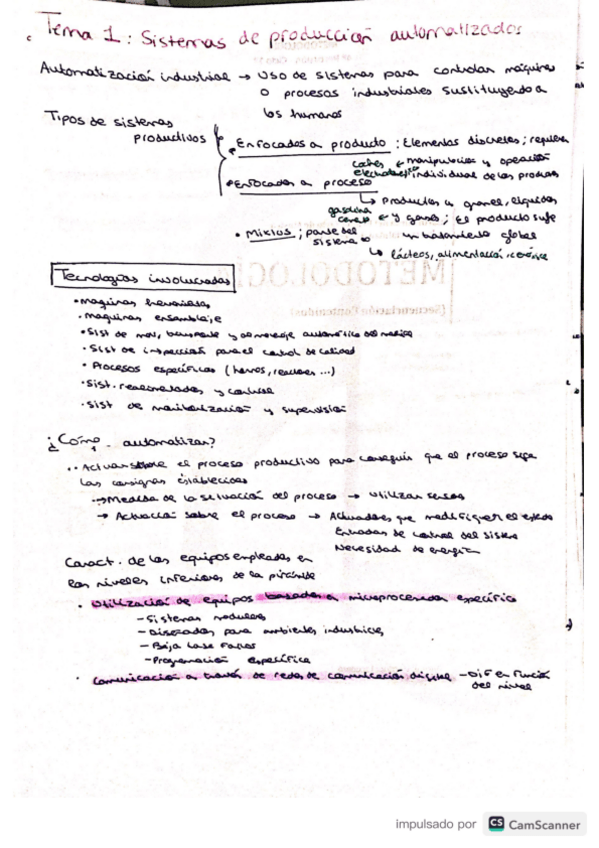 Tema 1: Sistemas de producción automatizados
Automatización industrial → Uso de sistemas para controlar máquinas
o procesos industriales sustituyendo a
los humanos
Tipos de sistemas
productivos
• Enfocados a producto: Elementos discretos; requieren
coches ← manipulación y operación
individual de los productos
• Enfocados a proceso
↳ Productos a granel, líquidos
gasolina
← y gases; El producto sufre
• Mixtos; parte del
sistema
un tratamiento global
↳ lácteos, alimentación, cerámica
Tecnologías involucradas
• Maquinas herramientas
• Maquinas ensamblaje
• Sist de mov, transporte y almacenaje automático del
• Sist de inspección para el control de calidad
• Procesos específicos (hornos, reactores ...)
• Sist. realimentados y control
• Sist de monitorización y supervisión
¿Cómo automatizar?
• Activar sobre el proceso productivo para conseguir que el proceso siga
las consignas establecidas
→ Medida de la situación del proceso → utilizar
→ Actuación sobre el proceso → Actuadores que modifiquen el estado
Entradas de control del sistema
Necesidad de energía
Caract. de los equipos empleados en
los niveles inferiores de la pirámide
• Utilización de equipos basados en microprocesador específico
- Sistemas modulares
- Diseñados para ambientes industriales
- Baja tasa fallos
- Programación específica
• Comunicación a través de redes de comunicación digital - Dif en función
del nivel
METODOLOGÍA
(Secuenciación Contenidos)
impulsado por CS CamScanner